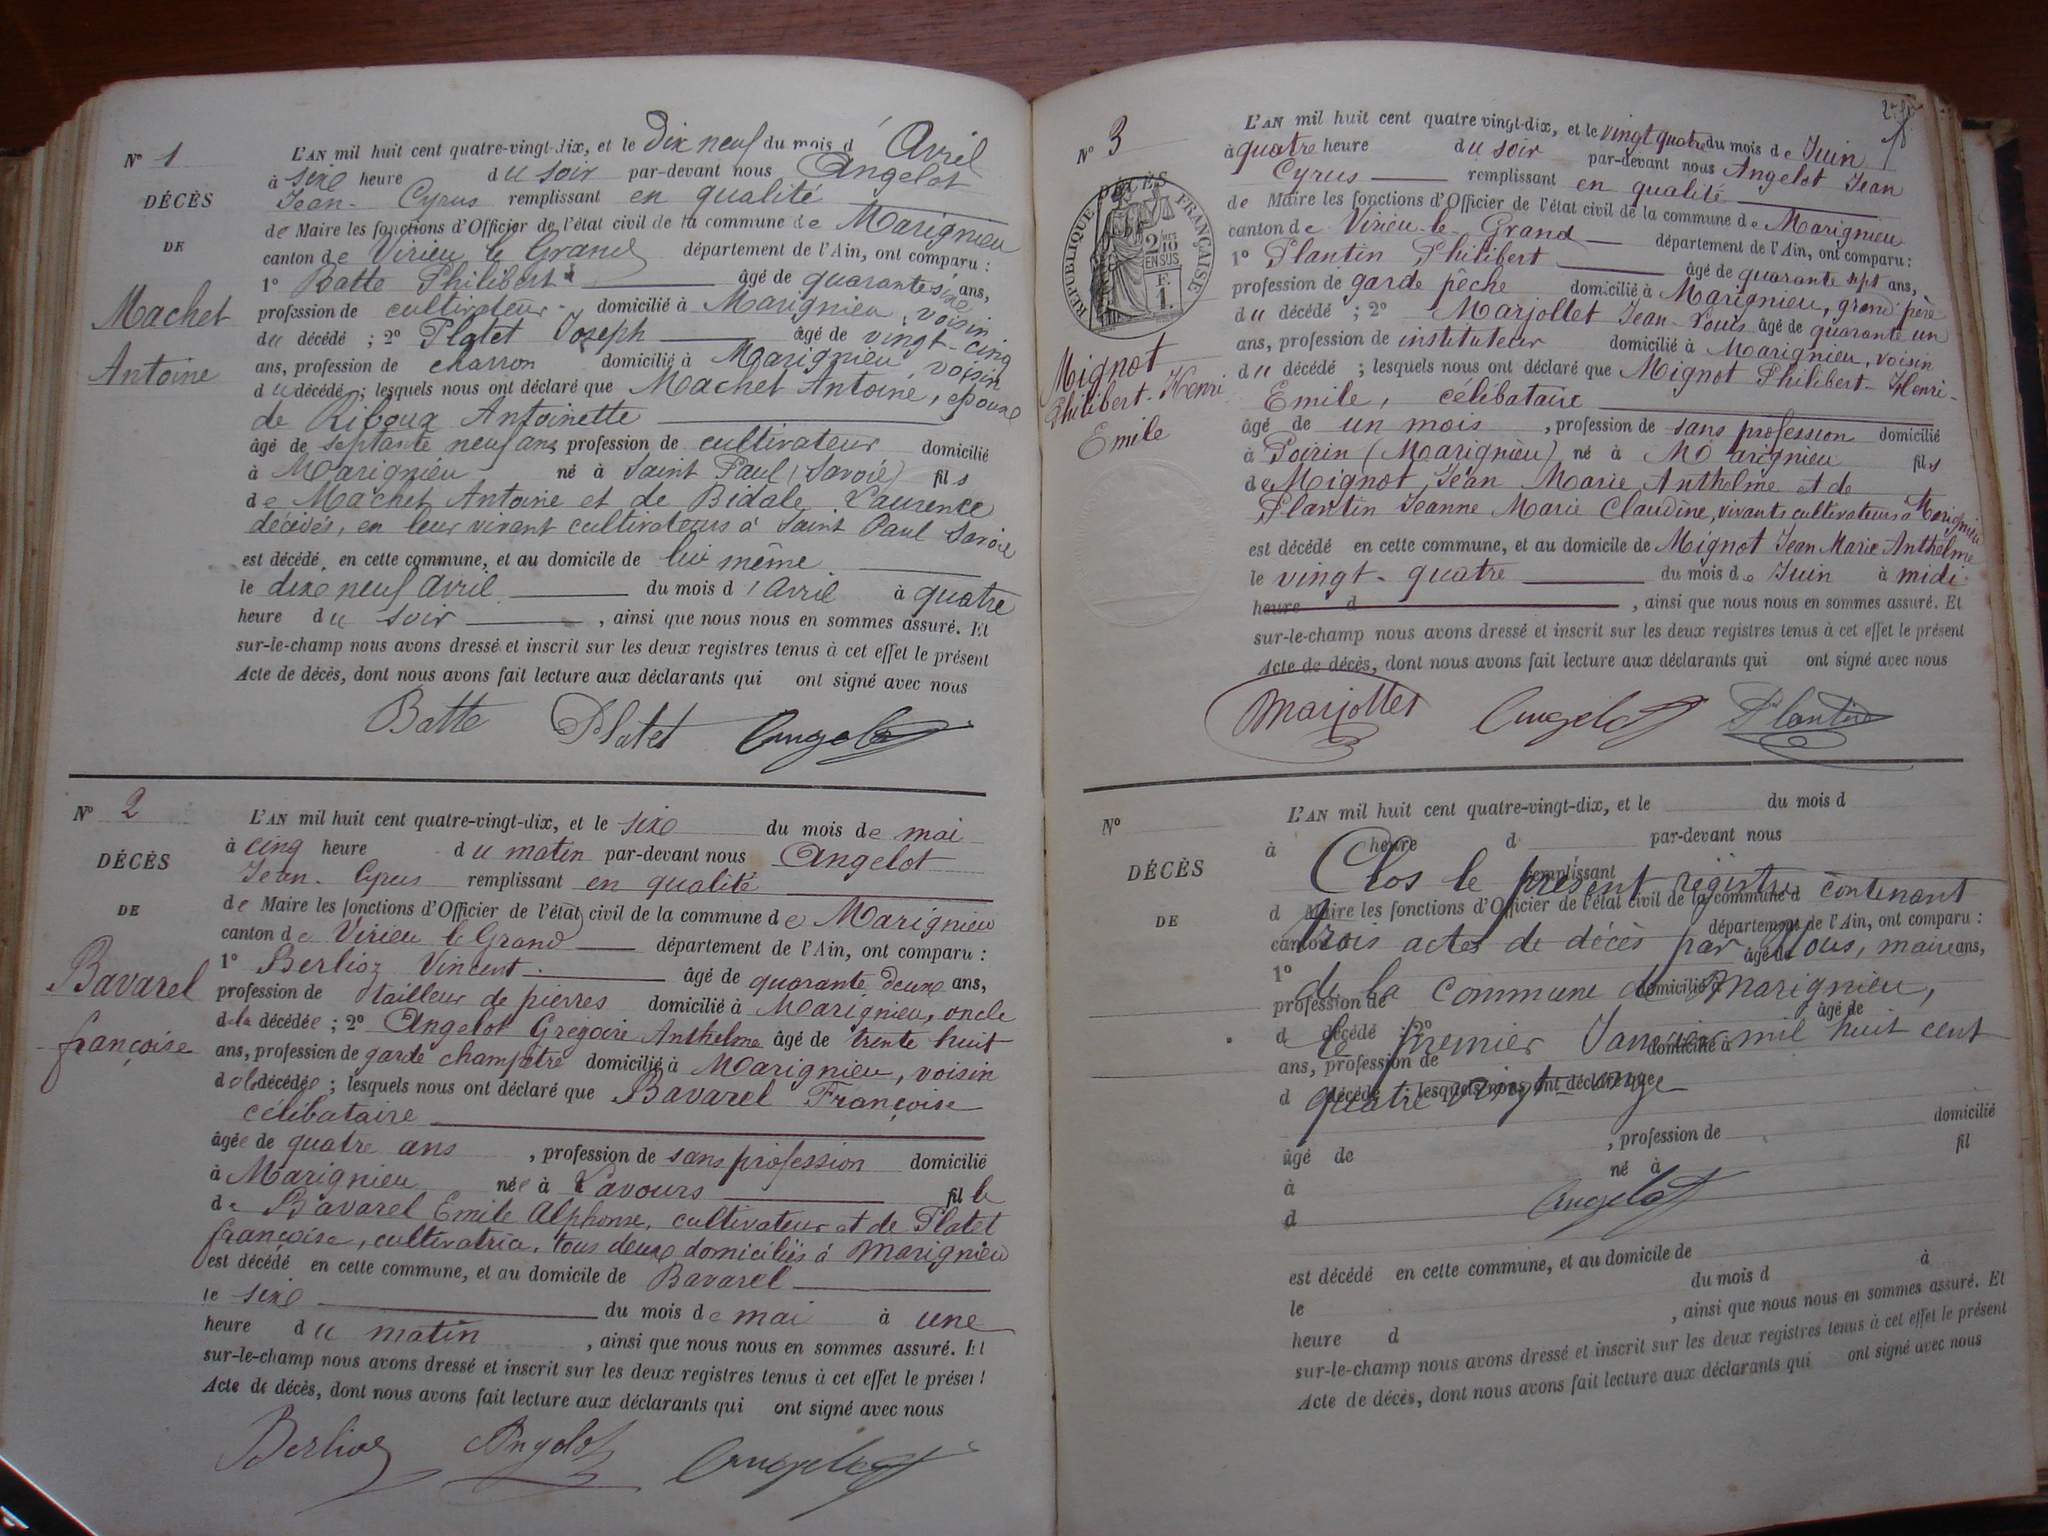 N° 1
DÉCÈS
DE
Machet
Antoine
L'AN mil huit cent quatre-vingt-dix, et le Dix neuf du mois d'Avril
à sixe heure du soir par-devant nous Angelot
Jean-Cyrus remplissant en qualité
de Maire les fonctions d'Officier de l'état civil de la commune de Marignieu
canton de Virieu le Grand département de l'Ain, ont comparu :
1° Batte Philibert âgé de quarante sixe ans,
profession de cultivateur domicilié à Marignieu, voisin
du décédé ; 2° Platet Joseph âgé de vingt-cinq
ans, profession de charron domicilié à Marignieu voisin
du décédé ; lesquels nous ont déclaré que Machet Antoine, époux
de Riboux Antoinette
âgé de septante neuf ans profession de cultivateur domicilié
à Marignieu né à Saint Paul (Savoie) fils
de Machet Antoine et de Bidale Laurence
décédés, en leur vivant cultivateurs à Saint Paul Savoie
est décédé en cette commune, et au domicile de lui même
le dixe neuf avril du mois d'avril à quatre
heure du soir, ainsi que nous nous en sommes assuré. Et
sur-le-champ nous avons dressé et inscrit sur les deux registres tenus à cet effet le présent
Acte de décès, dont nous avons fait lecture aux déclarants qui ont signé avec nous
Batte Platet Angelot
N° 2
DÉCÈS
DE
Bavarel
françoise
L'AN mil huit cent quatre-vingt-dix, et le sixe du mois de mai
à cinq heure du matin par-devant nous Angelot
Jean-Cyrus remplissant en qualité
de Maire les fonctions d'Officier de l'état civil de la commune de Marignieu
canton de Virieu le Grand département de l'Ain, ont comparu :
1° Berlioz Vincent âgé de quarante deuxe ans,
profession de tailleur de pierres domicilié à Marignieu, oncle
de la décédée ; 2° Angelot Gregoire Anthelme âgé de trente huit
ans, profession de garde champêtre domicilié à Marignieu, voisin
de la décédée ; lesquels nous ont déclaré que Bavarel Françoise
célibataire
âgée de quatre ans, profession de sans profession domicilié
à Marignieu née à Lavours fille
de Bavarel Emile Alphonse, cultivateur et de Platet
françoise, cultivatrice, tous deuxe domiciliés à Marignieu
est décédé en cette commune, et au domicile de Bavarel
le sixe du mois de mai à une
heure du matin, ainsi que nous nous en sommes assuré. Et
sur-le-champ nous avons dressé et inscrit sur les deux registres tenus à cet effet le présent
Acte de décès, dont nous avons fait lecture aux déclarants qui ont signé avec nous
Berlioz Angelot Angelot
N° 3
DÉCÈS
RÉPUBLIQUE FRANÇAISE
2/10
EN SUS
F.
1.
Mignot
Philibert-Henri
Emile
L'AN mil huit cent quatre vingt-dix, et le vingt quatre du mois de Juin
à quatre heure du soir par-devant nous Angelot Jean
Cyrus remplissant en qualité
de Maire les fonctions d'Officier de l'état civil de la commune de Marignieu
canton de Virieu-le-Grand département de l'Ain, ont comparu :
1° Plantin Philibert âgé de quarante sept ans,
profession de garde pêche domicilié à Marignieu, grand père
du décédé ; 2° Marjollet Jean-Louis âgé de quarante un
ans, profession de instituteur domicilié à Marignieu, voisin
du décédé ; lesquels nous ont déclaré que Mignot Philibert-Henri-
Emile, célibataire
âgé de un mois, profession de sans profession domicilié
à Poirin (Marignieu) né à Marignieu fils
de Mignot Jean Marie Anthelme et de
Plantin Jeanne Marie Claudine, vivants cultivateurs à Marignieu
est décédé en cette commune, et au domicile de Mignot Jean Marie Anthelme
le vingt-quatre du mois de Juin à midi
heure d, ainsi que nous nous en sommes assuré. Et
sur-le-champ nous avons dressé et inscrit sur les deux registres tenus à cet effet le présent
Acte de décès, dont nous avons fait lecture aux déclarants qui ont signé avec nous
Marjollet Angelot Plantin
N°
DÉCÈS
DE
L'AN mil huit cent quatre-vingt-dix, et le du mois d
à heure d par-devant nous
remplissant
Clos le présent régistre contenant
d Maire les fonctions d'Officier de l'état civil de la commune d
canton département de l'Ain, ont comparu :
trois actes de décès par Nous, maire
1° âgé de ans,
de la commune de Marignieu,
profession de domicilié à
d décédé ; 2° âgé de
le premier Janvier mil huit cent
ans, profession de domicilié à
d décédé ; lesquels nous ont déclaré que
quatre vingt-onze
âgé de , profession de domicilié
à né à fil
d
Angelot
est décédé en cette commune, et au domicile de
le du mois d à
heure d , ainsi que nous nous en sommes assuré. Et
sur-le-champ nous avons dressé et inscrit sur les deux registres tenus à cet effet le présent
Acte de décès, dont nous avons fait lecture aux déclarants qui ont signé avec nous